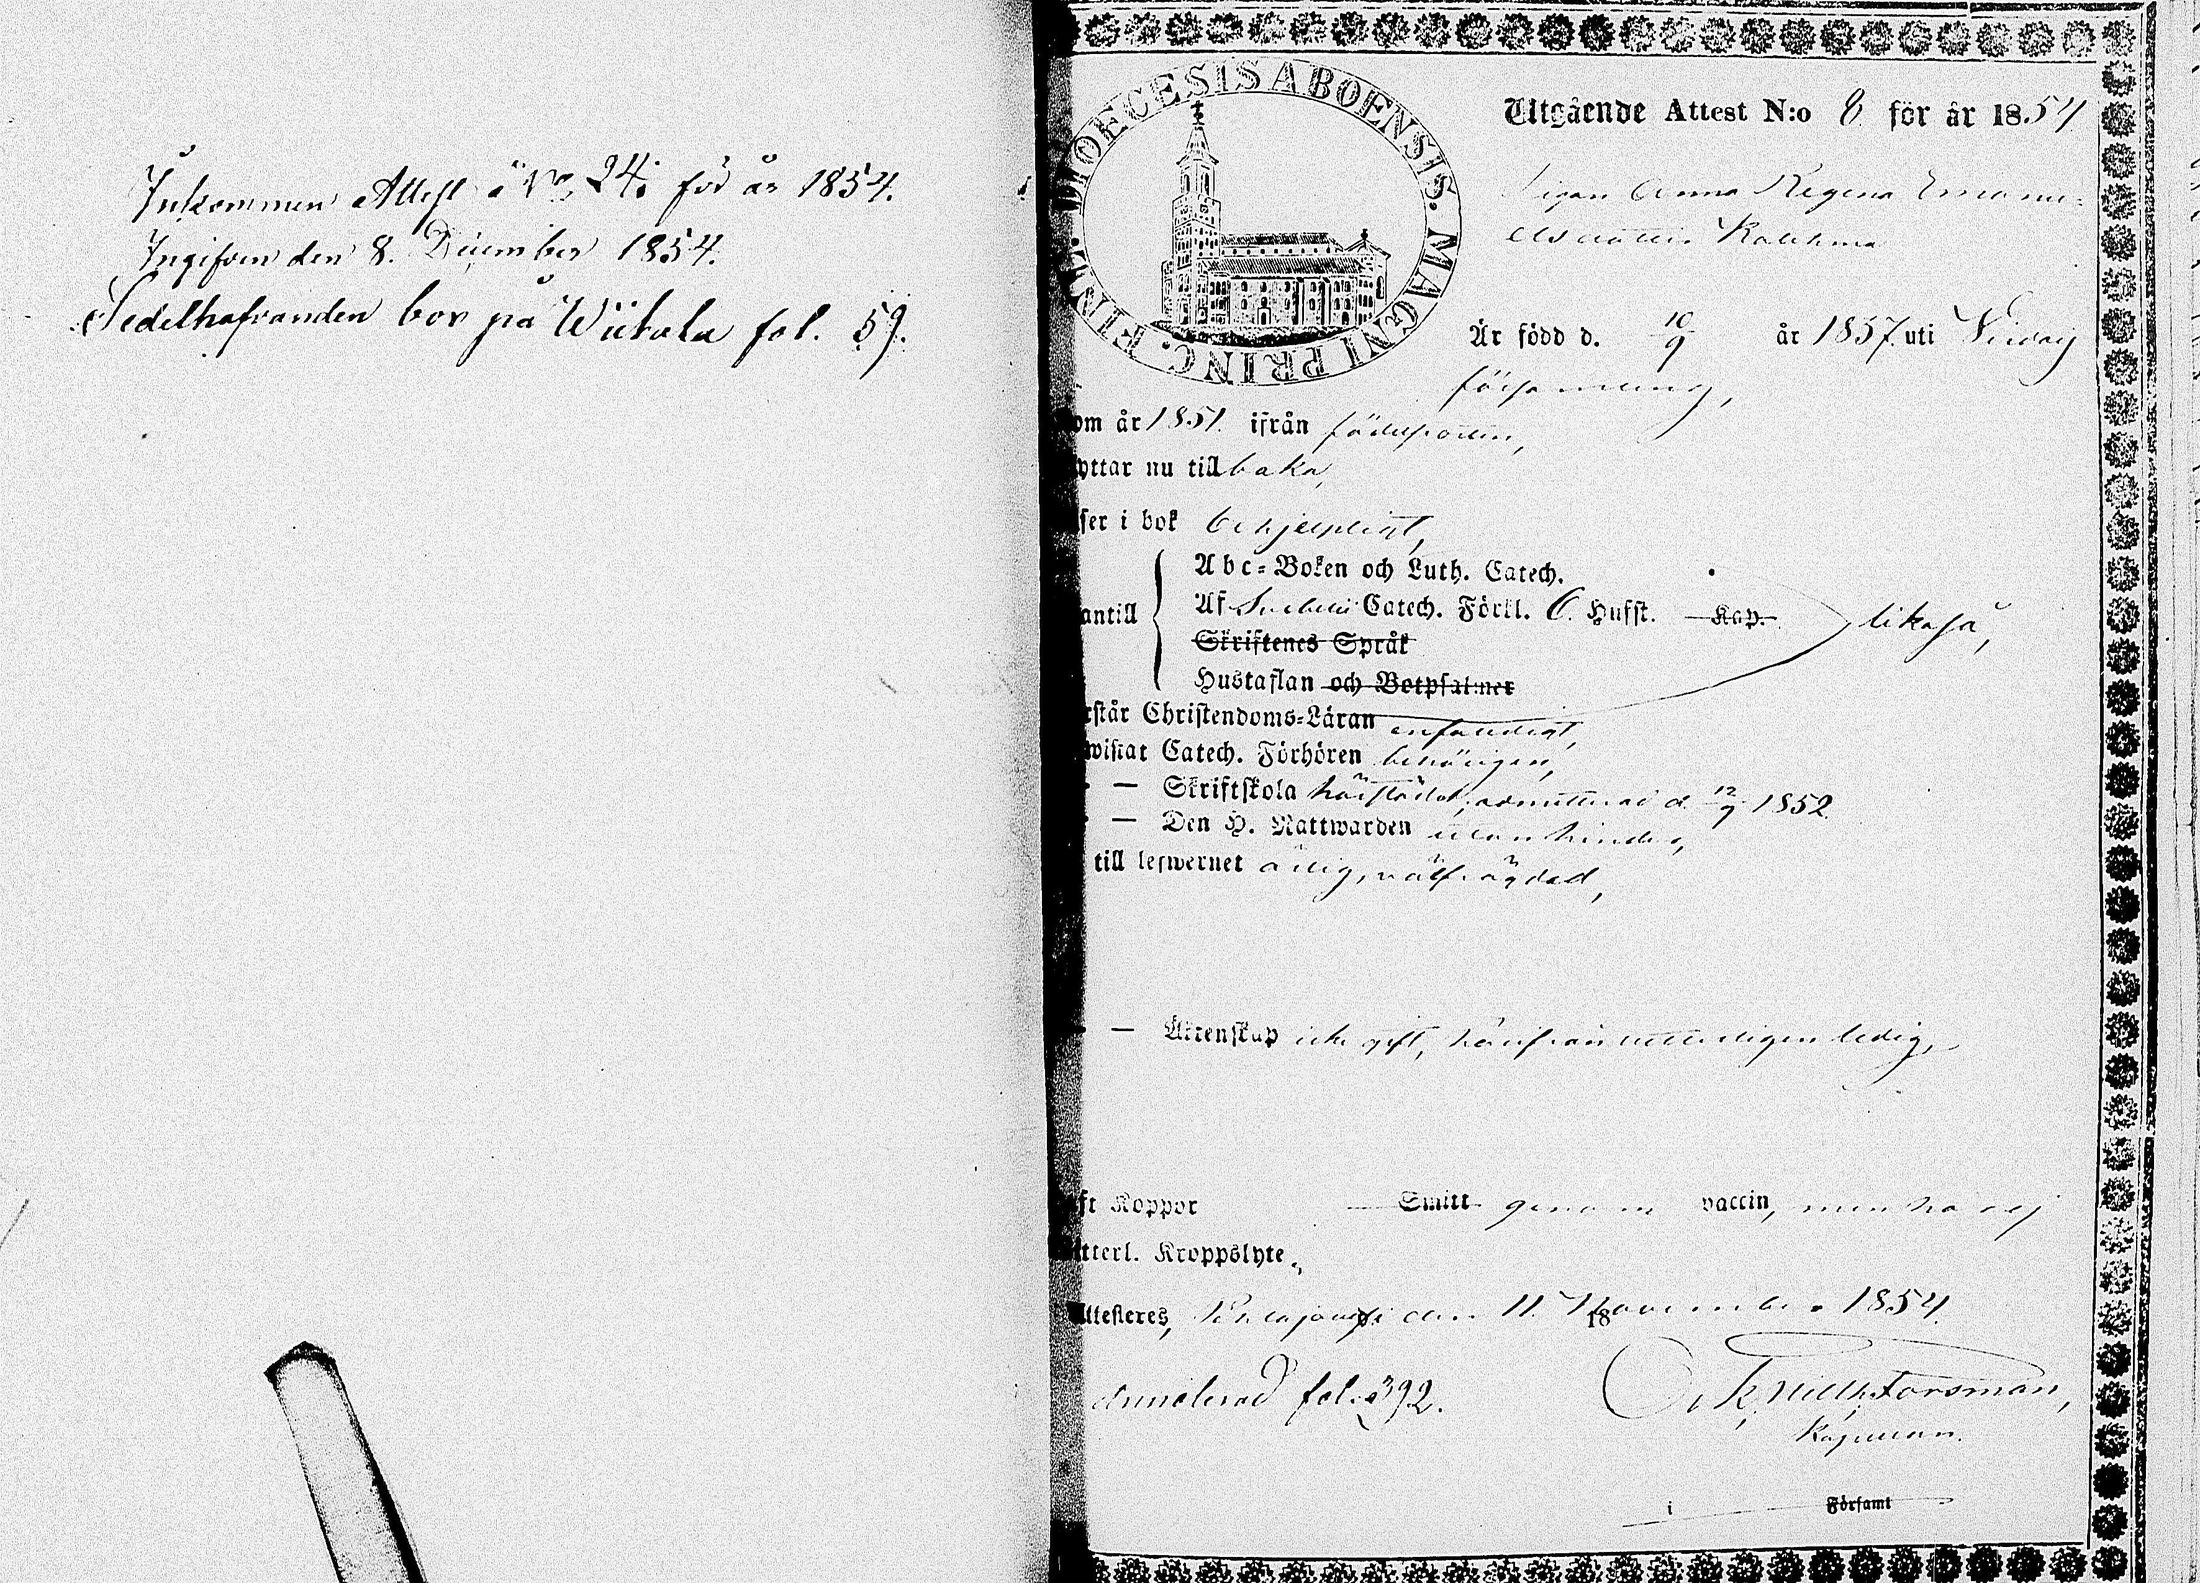 Inkommen Attest å No 24. för år 1854.
Ingifven den 8. December 1854.
Sedelhafvanden bor på Wiikala fol. 59.
DIOECESIS ABOENSIS. MAGNI PRINC. FINL.
Utgående Attest N:o 8 för år 1854
Pigan Anna Regina Emanu-
elsdotter
Är född d. 10/9 år 1837. uti
församling,
om år 1851. ifrån födelseorten,
yttar nu tillbaka,
ser i bok behjelpligt,
Abc-Boken och Luth. Catech.
antill Af Svebelii Catech. Förkl. 6. Hufst. Kap. likaså,
Skriftenes Språk
Hustaflan och Botpsalmer
rstår Christendoms-Läran enfaldigt,
wistat Catech. Förhören behörigen,
— Skriftskola härstädes, admitterad d. 12/9 1852.
— Den H. Nattwarden utan hinder,
till lefwernet ärlig, välfrägdad,
— Äktenskap icke gift, härifrån ledig,
ft Koppor Smitt genom vaccin, men har ej
tterl. Kroppslyte.
Attesteres, den 11. November 1854.
18
Annoterad fol. 392.
Forsman,
Kapellan.
i Församl